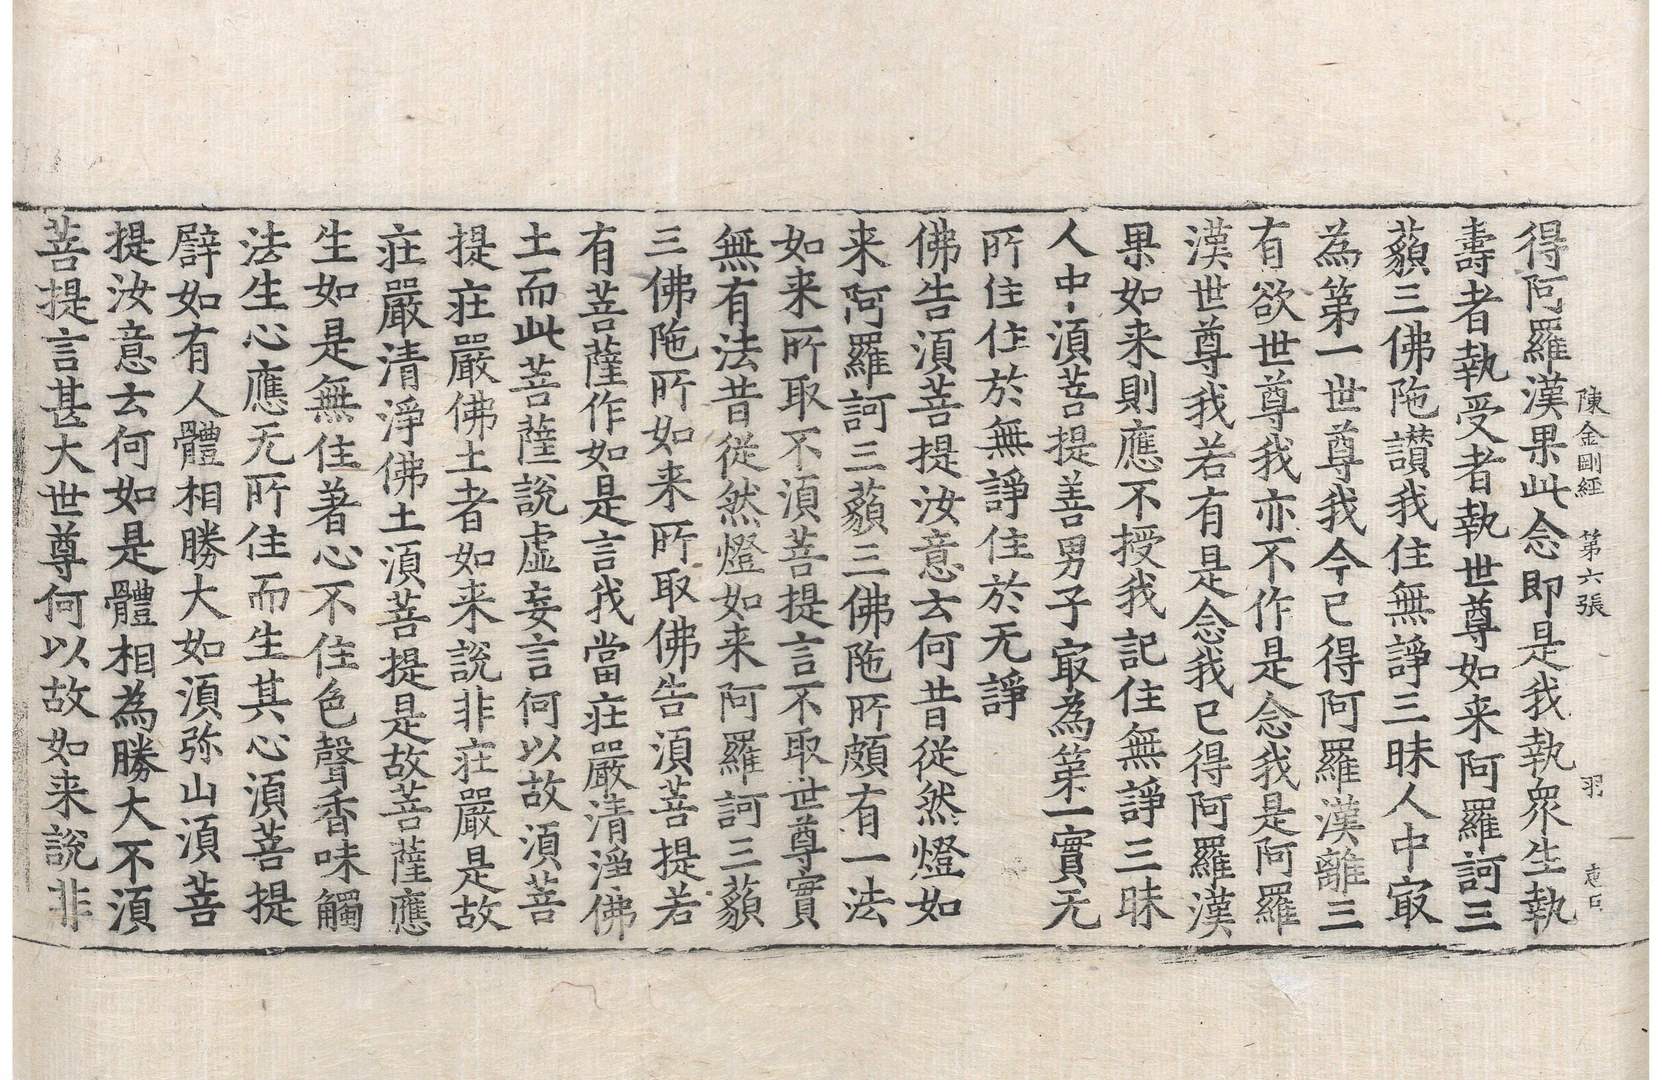 陳金剛經　第六張　羽　恵日
得阿羅漢果此念即是我執衆生執
壽者執受者執世尊如来阿羅訶三
藐三佛陁讃我住無諍三昧人中㝡
為第一世尊我今已得阿羅漢離三
有欲世尊我亦不作是念我是阿羅
漢世尊我若有是念我已得阿羅漢
果如来則應不授我記住無諍三昧
人中須菩提善男子㝡為第一實无
所住住於無諍住於无諍
佛告須菩提汝意云何昔從然燈如
来阿羅訶三藐三佛陁所頗有一法
如来所取不須菩提言不取世尊實
無有法昔從然燈如来阿羅訶三藐
三佛陁所如来所取佛告須菩提若
有菩薩作如是言我當莊嚴清淨佛
土而此菩薩說虛妄言何以故須菩
提莊嚴佛土者如来說非莊嚴是故
莊嚴清淨佛土須菩提是故菩薩應
生如是無住著心不住色聲香味觸
法生心應无所住而生其心須菩提
譬如有人體相勝大如須弥山須菩
提汝意云何如是體相為勝大不須
菩提言甚大世尊何以故如来說非